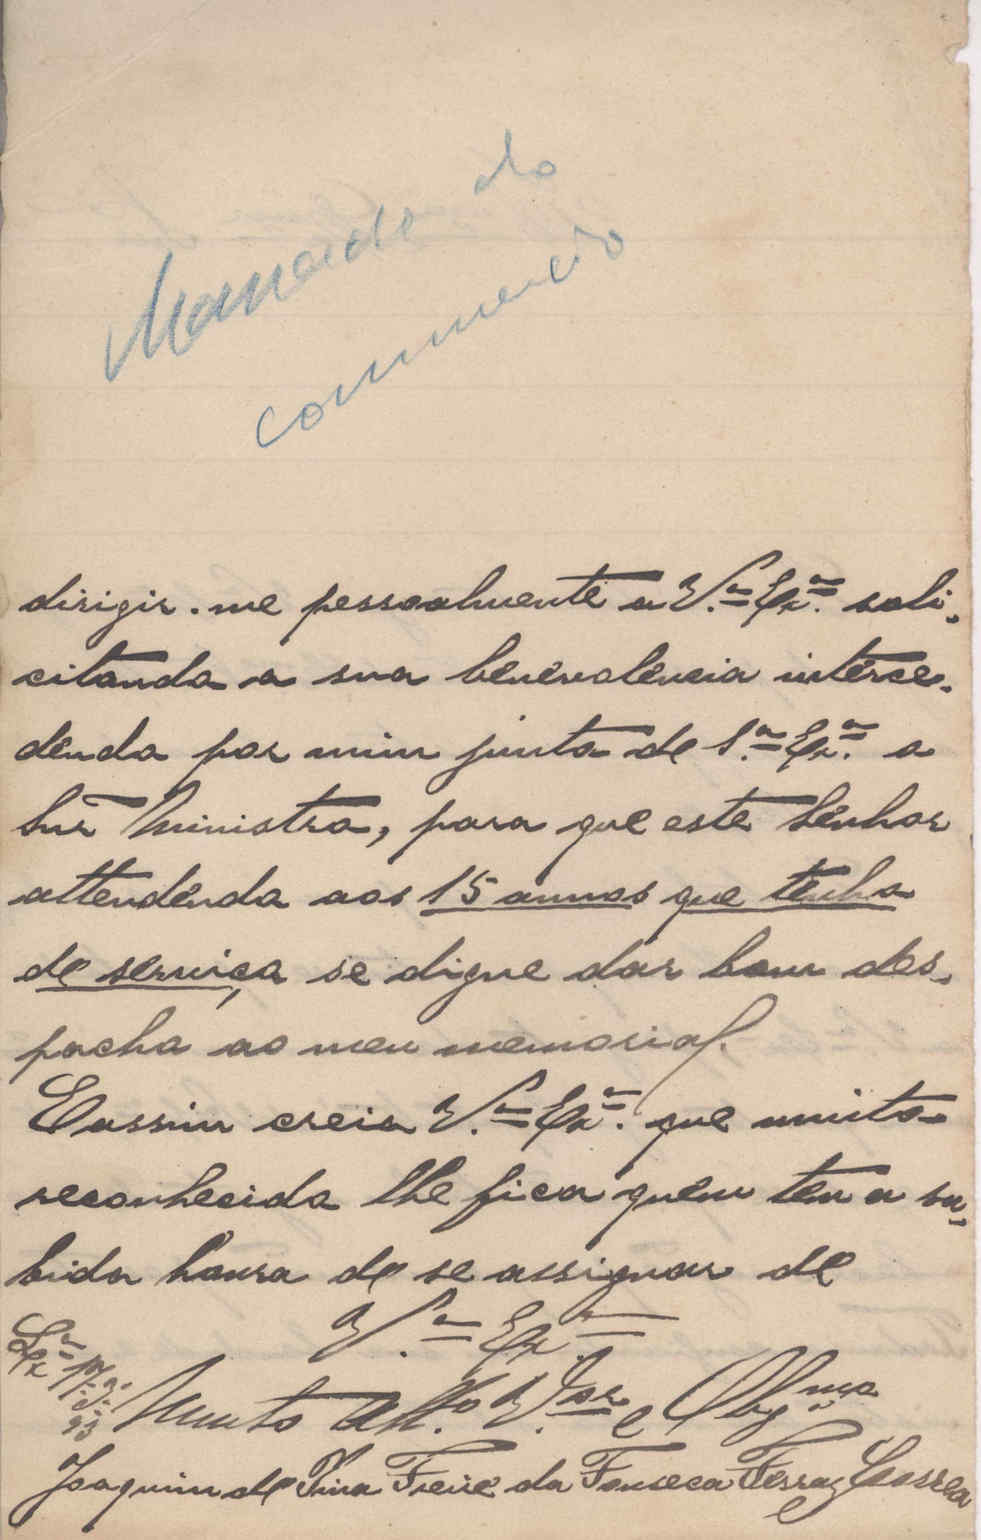 do
commercio
dirigir-me pessoalmente a V.ª Ex.ª soli-
citando a sua benevolencia interce-
dendo por mim junto de S.ª Ex.ª o
Snr Ministro, para que este Senhor
attendendo aos 15 annos que tenho
de serviço, se digne dar bom des-
pacho ao meu memorial.
E assim creia V.ª Ex.ª que muito
reconhecido lhe fica quem tem a su-
bida honra de se assignar de
V.ª Ex.ª
Lx.ª
93
Muito Att.º V.dor e Obg.mo
Joaquim de Pina Freire da Fonseca Ferraz Correa